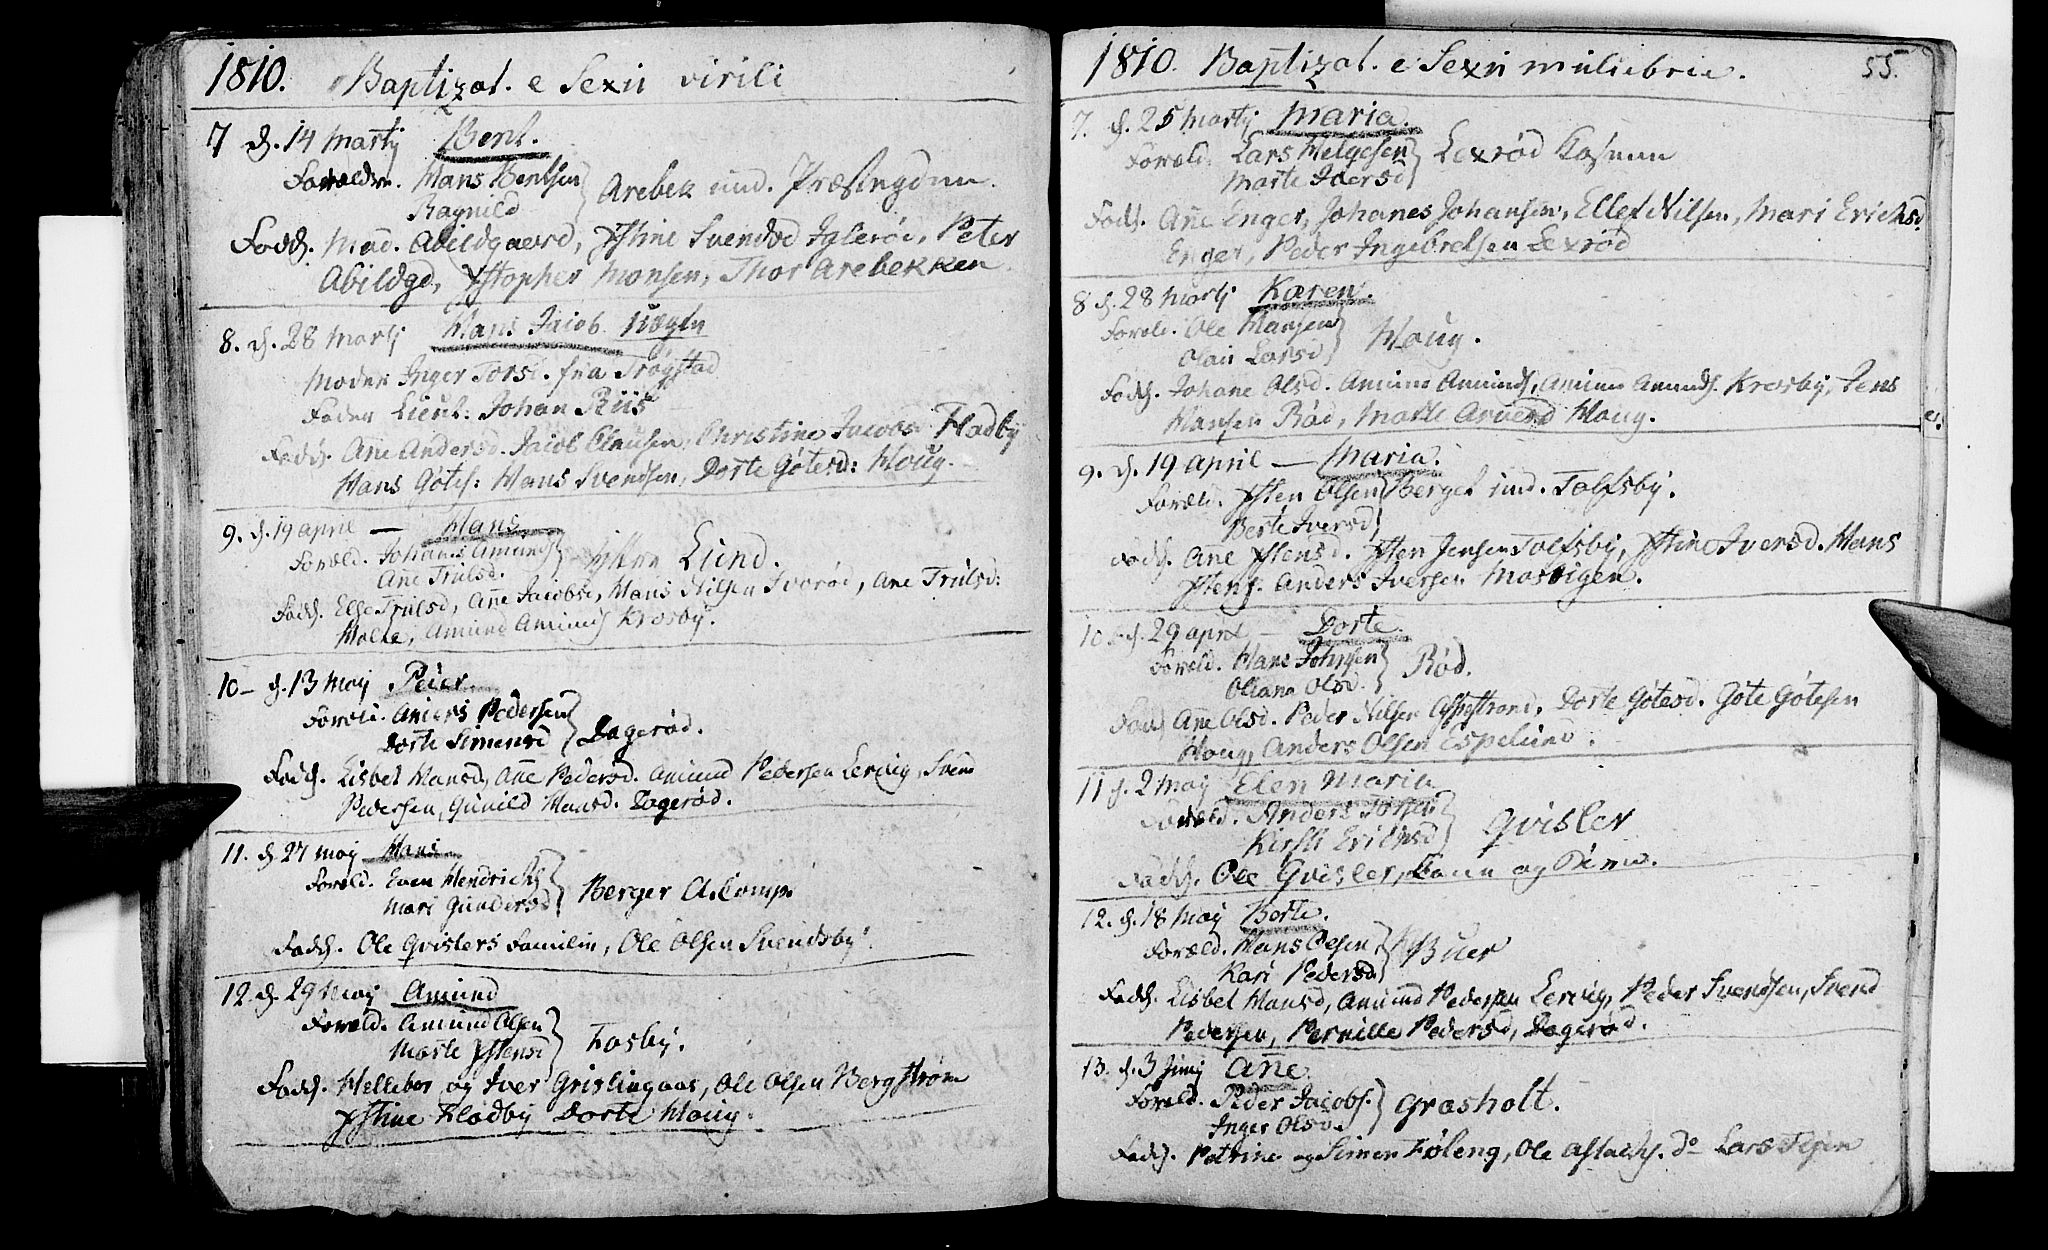 1810. Baptizat. e Sexu virili
7 d. 14 Martij Bent.
Forældre. Hans Bentsen
Ragnild } Arebek und. Præstegdnn.
Fadd. Mad. Abildgaard, Xstine Svendsd Iglerøe, Peter
Abildgd, Xstopher Monsen, Thor Arebekken.
8. d. 28 Martj Hans Jacob uægte
Moder Inger Torsd. fra Trøgstad
Fader Lieut: Johan Riis
Fadd. Ane Andersd. Jacob Clausen, Christine Jacobs. Fladby
Hans Götes: Hans Svendsen, Dorte Götesd: Houg.
9. d. 19 april — Hans
Foræld. Johanes Amunds
Ane Trulsd. } Lund.
Fadd. Else Trulsd, Ane Jacobsd, Hans Nilsen Svarød, Ane Trulsd:
Holte, Amund Amunds Krosby.
10 - d. 13 Maij Peder
Foræld. Anders Pedersen
Dorte Simensd } Dagerød.
Fadd. Lisbet Hansd, Ane Pedersd. Amund Pedersen Lervig, Svend
Pedersen, Gunild Hansd. Dagerød.
11. d. 27 Maj Hans
Foræld. Even Hendrichs
Mari Gundersd } Berger A. Comp.
Fadd. Ole Gvislers Familie, Ole Olsen Svendsby.
12. d. 29 Maij Amund
Foræld. Amund Olsen
Marte Xstensd } Fosby.
Fadd. Hellebor og Iver Grislingaas, Ole Olsen Bergstrøm
Xstine Fladby Dorte Houg.
1810. Baptizat. e Sexu muliebrie. 55.
7. d. 25 Martij Maria.
Foræld. Lars Helgesen
Marte Iversd } Lexrød
Fadd. Ane Enger, Johanes Johansen, Ellef Nilsen, Mari Erichsd.
Enger, Peder Ingebretsen Lexrød
8 d. 28 Martj Karen.
Foræld. Ole Hansen
Larsd } Houg.
Fadd. Johane Olsd. Amund Amunds, Amund Amunds. Krosby, Jens
Hansen Rød, Marte Houg.
9. d. 19 april — Maria.
Foræld. Xsten Olsen
Berte Iversd } Berget und. Tolfsby.
Fadd. Ane Xstensd. Xsten Jensen Tolfsby, Xstine Iversd. Hans
Xstens. Anders Iversen Mosvigen.
10. d. 29 april — Dorte.
Foræld. Hans Johnsen
Oliana Olsd. } Rød.
Fadd Ane Olsd. Peder Nilsen Aspestrand, Dorte Götesd. Göte Götesen
Houg, Anders Olsen Espelund.
11 d. 2 Maj Elen Maria
Foræld. Anders
Kirsti Erichsd } Gvisler
Fadd. Ole Gvisler, og
12. d. 18 Maij Borte.
Foræld. Hans Olsen
Kari Pedersd. } Buer
Fadd. Lisbet Hansd, Amund Pedersen Lervig, Peder Svendsen, Svend
Pedersen, Pernille Pedersd, Dagerød.
13. d. 3 Junij Ane.
Foræld. Peder Jacobs.
Inger Olsd. } Grosholt.
Fadd. Petrine og Simen Føleng, Ole Aslachs. do Lars